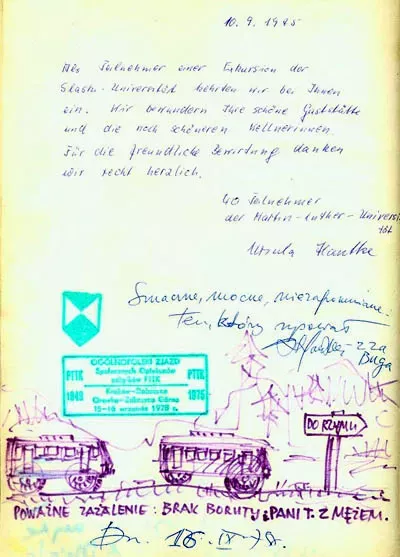 10. 9. 1975
Als Teilnehmer einer Exkursion der
Slask-Universität kehrten wir bei Ihnen
ein. Wir bewundern Ihre schöne Gaststätte
und die noch schöneren Kellnerinnen
Für die freundliche Bewirtung danken
wir recht herzlich.
40 Teilnehmer
der Martin-Luther-Universi
tät
Ursula
Smaczne, mocne, niezapomniane.
Ten, który
zza
Buga
OGÓLNOPOLSKI ZJAZD
PTTK Społecznych Opiekunów PTTK
zabytków PTTK
Orawka-Zubrzyca Górna
15-16 września 1978 r.
DO RZYMU
POWAŻNE ZAŻALENIE: BRAK BORUTY I PANI T. Z MĘŻEM.
Dn. 16.IX.78.